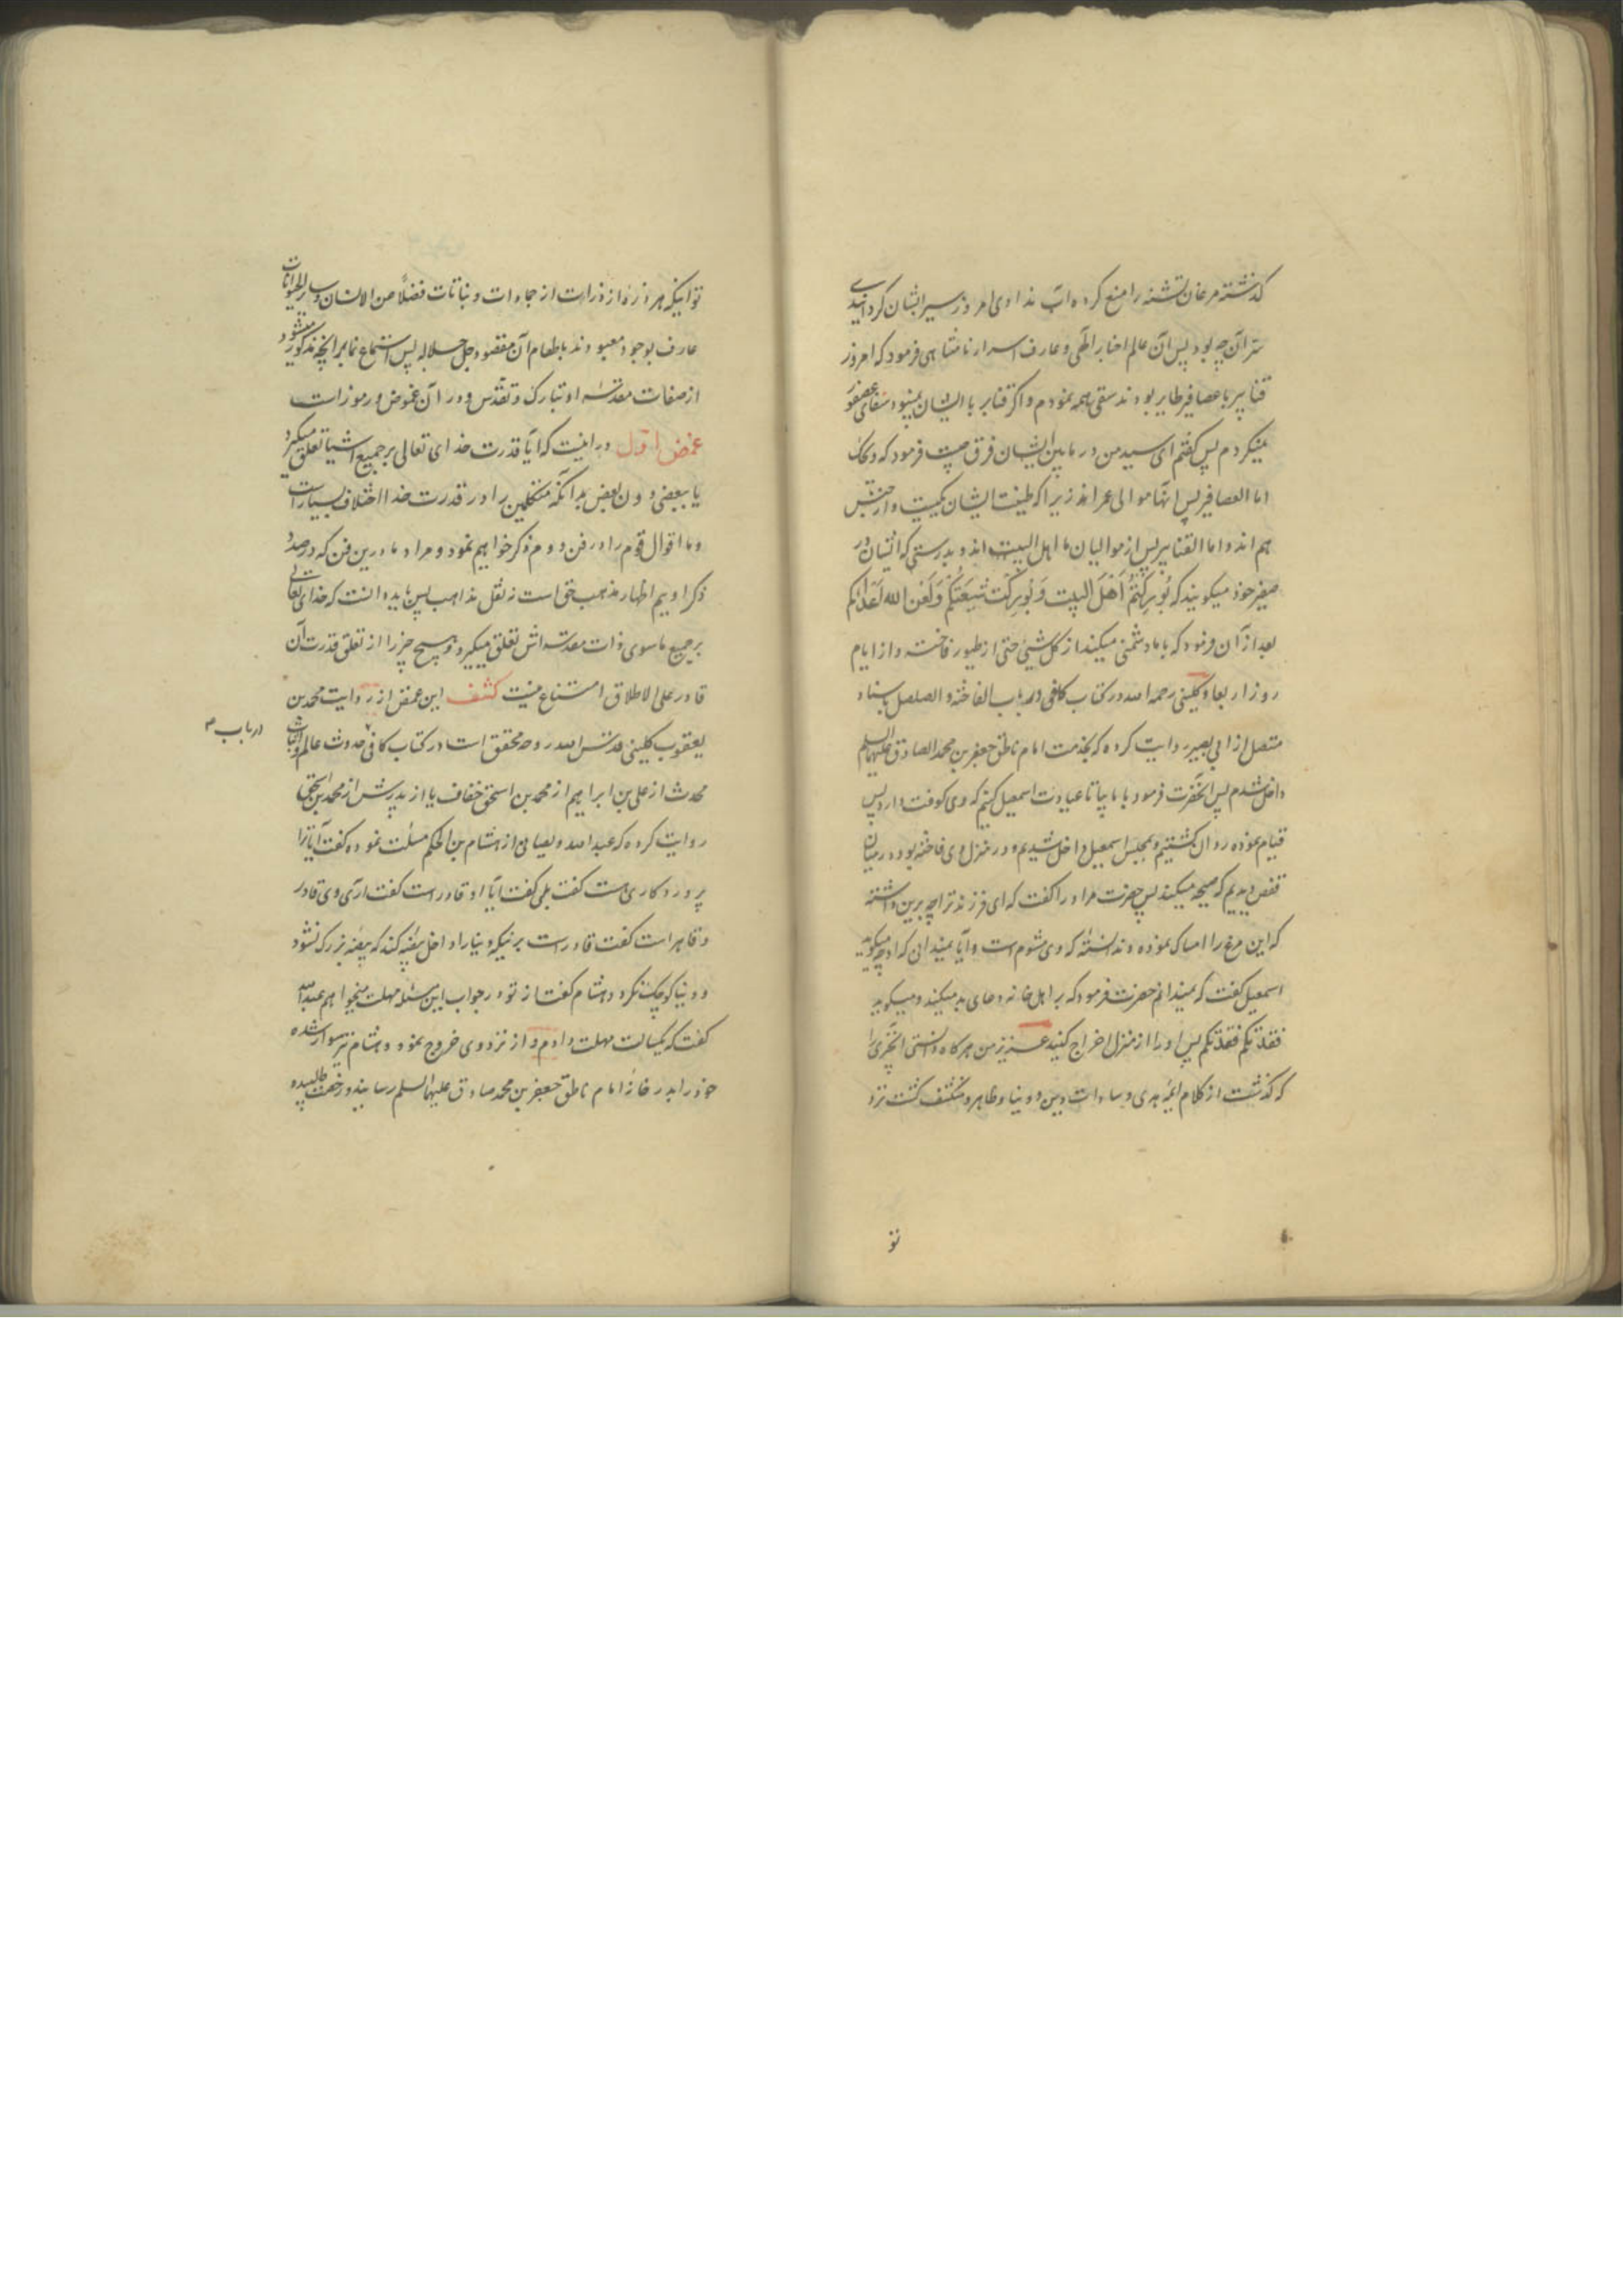 گذشته مرغان تشنه را منع کرده آب ندادی امروز سیر ایشان گردانیدی
سر آن چه بود پس آن عالم اخبار الهی و عارف اسرار نامتناهی فرمود که امروز
قنابر با عصافیر طایر بودند سقی همه نمودم و اگر قنابر با ایشان نمیبود سقای عصفور
نمیکردم پس گفتم ای سید من در مابین ایشان فرق چیست فرمود که
اما العصافیر پس آنها موالی عمراند زیرا که طینت ایشان یکیست و از جنس
هم اند و اما القنابر پس از موالیان ما اهل البیت اند و بدرستی که ایشان در
صفیر خود میگویند که بُورِکتُم أهلَ البیت وَ بُورِکَت شیعَتُکُم وَ لَعَنَ الله أعدائکم
بعد از آن فرمود که با ما دشمنی میکنند از کل شیئ حتی از طیور فاخته و از ایام
روز اربعا و کلینی رحمه الله در کتاب کافی در باب الفاخته و الصلصل باسناد
متصل از ابی بصیر روایت کرده که بخدمت امام ناطق جعفر بن محمد الصادق علیهما السلم
داخل شدم پس آنحضرت فرمود با ما بیا تا عیادت اسمعیل کنیم که وی کوفت دارد پس
قیام نموده روان گشتیم و بمجلس اسمعیل داخل شدیم و در منزل وی فاخته بود در میان
قفص دیدیم که صیحه میکند پس حضرت مر او را گفت که ای فرزند ترا چه برین داشته
که این مرغ را امساک نموده و ندانسته که وی شوم است و آیا نمیدانی که او چه میگوید
اسمعیل گفت که نمیدانم حضرت فرمود که بر اهل خانه دعای بد میکند و میگوید
فقدتکم فقدتکم پس او را از منزل اخراج کنید عزیز من هرگاه دانستی آنچیزی را
که گذشت از کلام ائمه هدی و سادات دین و دنیا و ظاهر و منکشف گشت نزد
تو
تو اینکه هر ذره از ذرات از جمادات و نباتات فضلاً من الانسان و سایر الحیوانات
عارف بوجود معبودند با طعام آن مقصود جل جلاله پس استماع نما مر آنچه مذکور میشود
از صفات مقدسه او تبارک و تقدس و در آن غموض و رموزات
غمض اول در اینست که آیا قدرت خدای تعالی بر جمیع اشیا تعلق میگیرد
یا ببعضی دون بعض بدانکه متکلمین را در قدرت خدا اختلاف بسیار است
و ما اقوال قوم را در فن دوم ذکر خواهیم نمود و مراد ما درین فن که در صدد
ذکر اویم اظهار مذهب حق است نه نقل مذاهب پس باید دانست که خدای تعالی
بر جمیع ماسوی ذات مقدسه اش تعلق میگیرد و هیچ چیز را از تعلق قدرت آن
قادر علی الاطلاق امتناع نیست کشف این غمض از روایت محمد بن
یعقوب کلینی قدس الله روحه محقق است در کتاب کافی حدوث عالم و اثبات
در باب
محدث از علی بن ابراهیم از محمد بن اسحق خفاف یا از پدرش از محمد بن اسحق
روایت کرده که عبد الله دیصانی از هشام بن الحکم مسئلت نموده گفت آیا ترا
پروردکاری هست گفت بلی گفت آیا او قادر است گفت آری وی قادر
و قاهر است گفت قادر است بر اینکه دنیا را داخل بیضه کند که بیضه بزرک نشود
و دنیا کوچک نگردد هشام گفت از تو در جواب این مسئله مهلت میخواهم عبد الله
گفت که یکسالت مهلت دادم و از نزد وی خروج نمود و هشام نیز سوار شده
خود را بدر خانه امام ناطق جعفر بن محمد صادق علیهما السلم رسانید و رخصت طلبیده